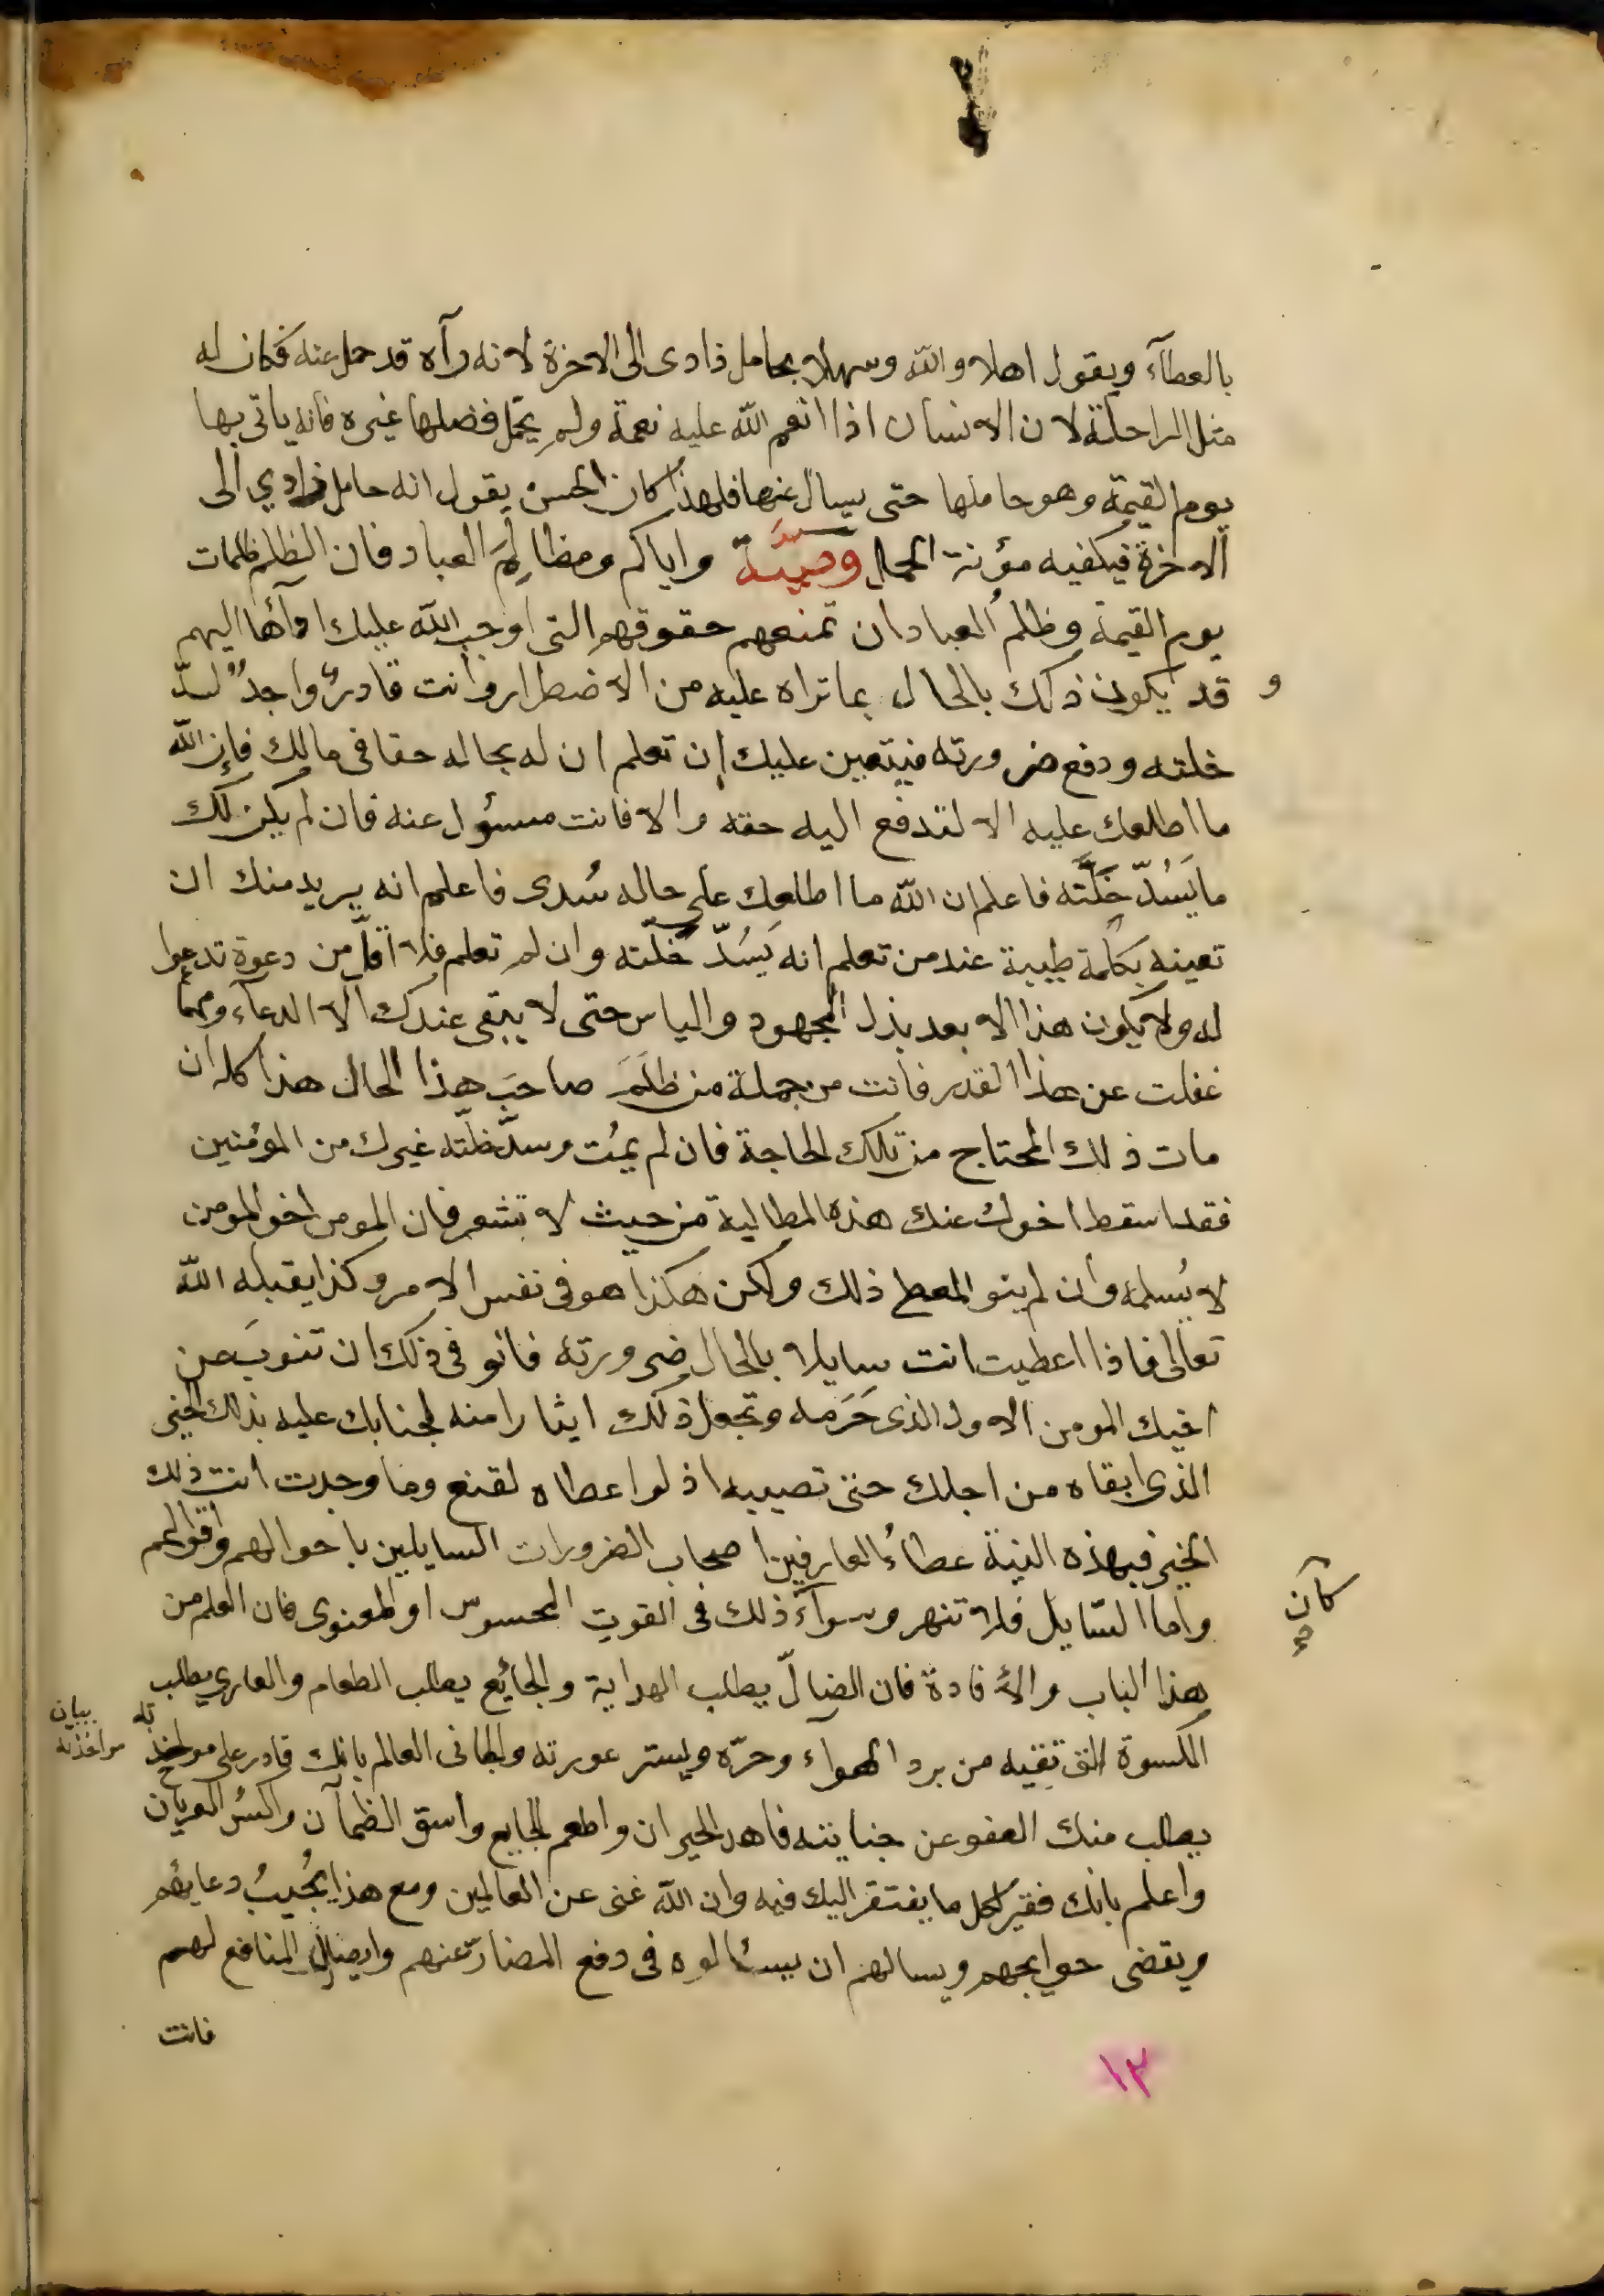 بالعطآء ويقول اهلا والله وسهلا بحامل زادى الى الاخرة لانه رآه قد حمل عنه فكان له
مثل الراحلة لان الانسان اذا انعم الله عليه نعمة ولم يحمل فضلها غيره فانه ياتى بها
يوم القيمة وهو حاملها حتى يسال عنها فلهذا كان الحسن يقول انه حامل زادي الى
الاخرة فيكفيه مؤنة الحمال وصيَّة واياكم ومظالِمَ العباد فان الظلم ظلمات
يوم القيمة وظلم العباد ان تمنعهم حقوقهم التى اوجب الله عليك ادآءها اليهم
و قد يكون ذلك بالحال بما تراه عليه من الاضطرار وانت قادرٌ واجدٌ لسدّ
خلته ودفع ضرورته فيتعين عليك ان تعلم ان له بحاله حقا فى مالك فإن الله
ما اطلعك عليه الا لتدفع اليه حقه والا فانت مسؤل عنه فان لم يكن لك
ما يَسُدّ خَلَّته فاعلم ان الله ما اطلعك على حاله سُدى فاعلم انه يريد منك ان
تعينه بكلمة طيبة عند من تعلم انه يَسُدّ خلّته وان لم تعلم فلا اقلّ من دعوة تدعوا
له ولا يكون هذا الا بعد بذل المجهود والياس حتى لا يبقى عندك الا الدعآء ومهما
غفلت عن هذا القدر فانت من جملة من ظلَمَ صاحبَ هذا الحال هذا كله ان
مات ذلك المحتاج من تلك الحاجة فان لم يمُت وسدّ خلّته غيرك من المؤمنين
فقد اسقط اخوك عنك هذه المطالبة من حيث لا تشعر فان المومن اخو المومن
لا يُسلمه وان لم ينو المعطى ذلك ولكن هكذا هو فى نفس الامر وكذا يقبله الله
تعالى فاذا اعطيت انت سايلا بالحال ضرورته فانو فى ذلك ان تنوبَ عن
اخيك المومن الاول الذى حَرَمه وتجعل ذلك ايثارا منه لجنابك عليه بذلك الخير
الذى ابقاه من اجلك حتى تصيبه اذ لو اعطاه لقنع وما وجدت انت ذلك
الخير فبهذه النية عطاءُ العارفين اصحاب الضرورات السايلين باحوالهم واقوالهم
كآن
واما السّايل فلا تنهر وسوآء ذلك فى القوتِ المحسوس او المعنوى فان العلم من
هذا الباب والافادة فان الضالّ يطلب الهداية والجائع يطلب الطعام والعارى يطلب
الكسوة التى تقيه من برد الهواء وحرّه ويستر عورته والجانى العالم بانك قادر على مواخذ ته
بيان مواخذته
يطلب منك العفو عن جنايته فاهد الحيران واطعم الجايع واسق الظمآن واكسُ العريان
واعلم بانك فقير لكل ما يفتقر اليك فيه وان الله غنى عن العالمين ومع هذا يُجيبُ دعايهم
ويقضى حوايجهم ويسالهم ان يسئالوه فى دفع المضارّ عنهم وايصال المنافع لهم
فانت
١٣